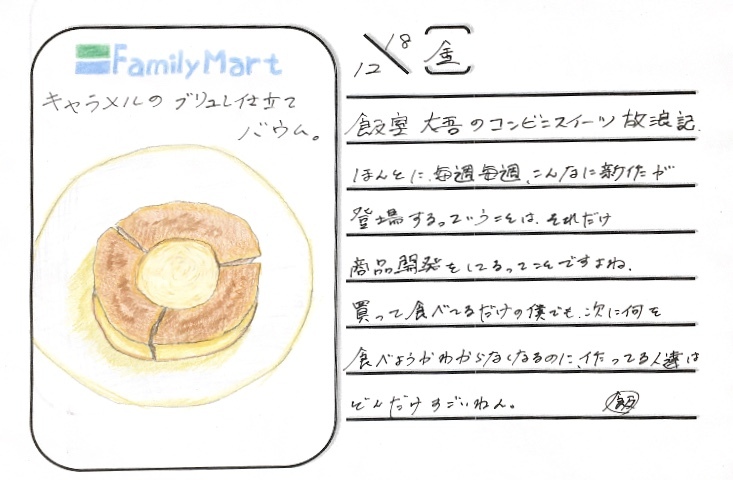 FamilyMart
キャラメルの ブリュレ仕立て
バウム。
12/18 金
飯室 大吾のコンビニスイーツ放浪記.
ほんとに、毎週毎週、こんなに新作が
登場するっていうことは、それだけ
商品開発をしてるってことですよね、
買って食べてるだけの僕でも、次に何を
食べようかわからなくなるのに、作ってる人達は
どんだけすごいねん。